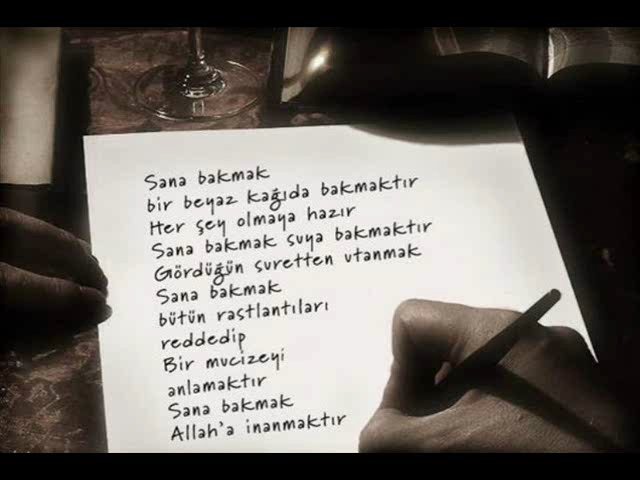 Sana bakmak
bir beyaz kağıda bakmaktır
Her şey olmaya hazır
Sana bakmak suya bakmaktır
Gördüğün suretten utanmak
Sana bakmak
bütün rastlantıları
reddedip
Bir mucizeyi
anlamaktır
Sana bakmak
Allah'a inanmaktır